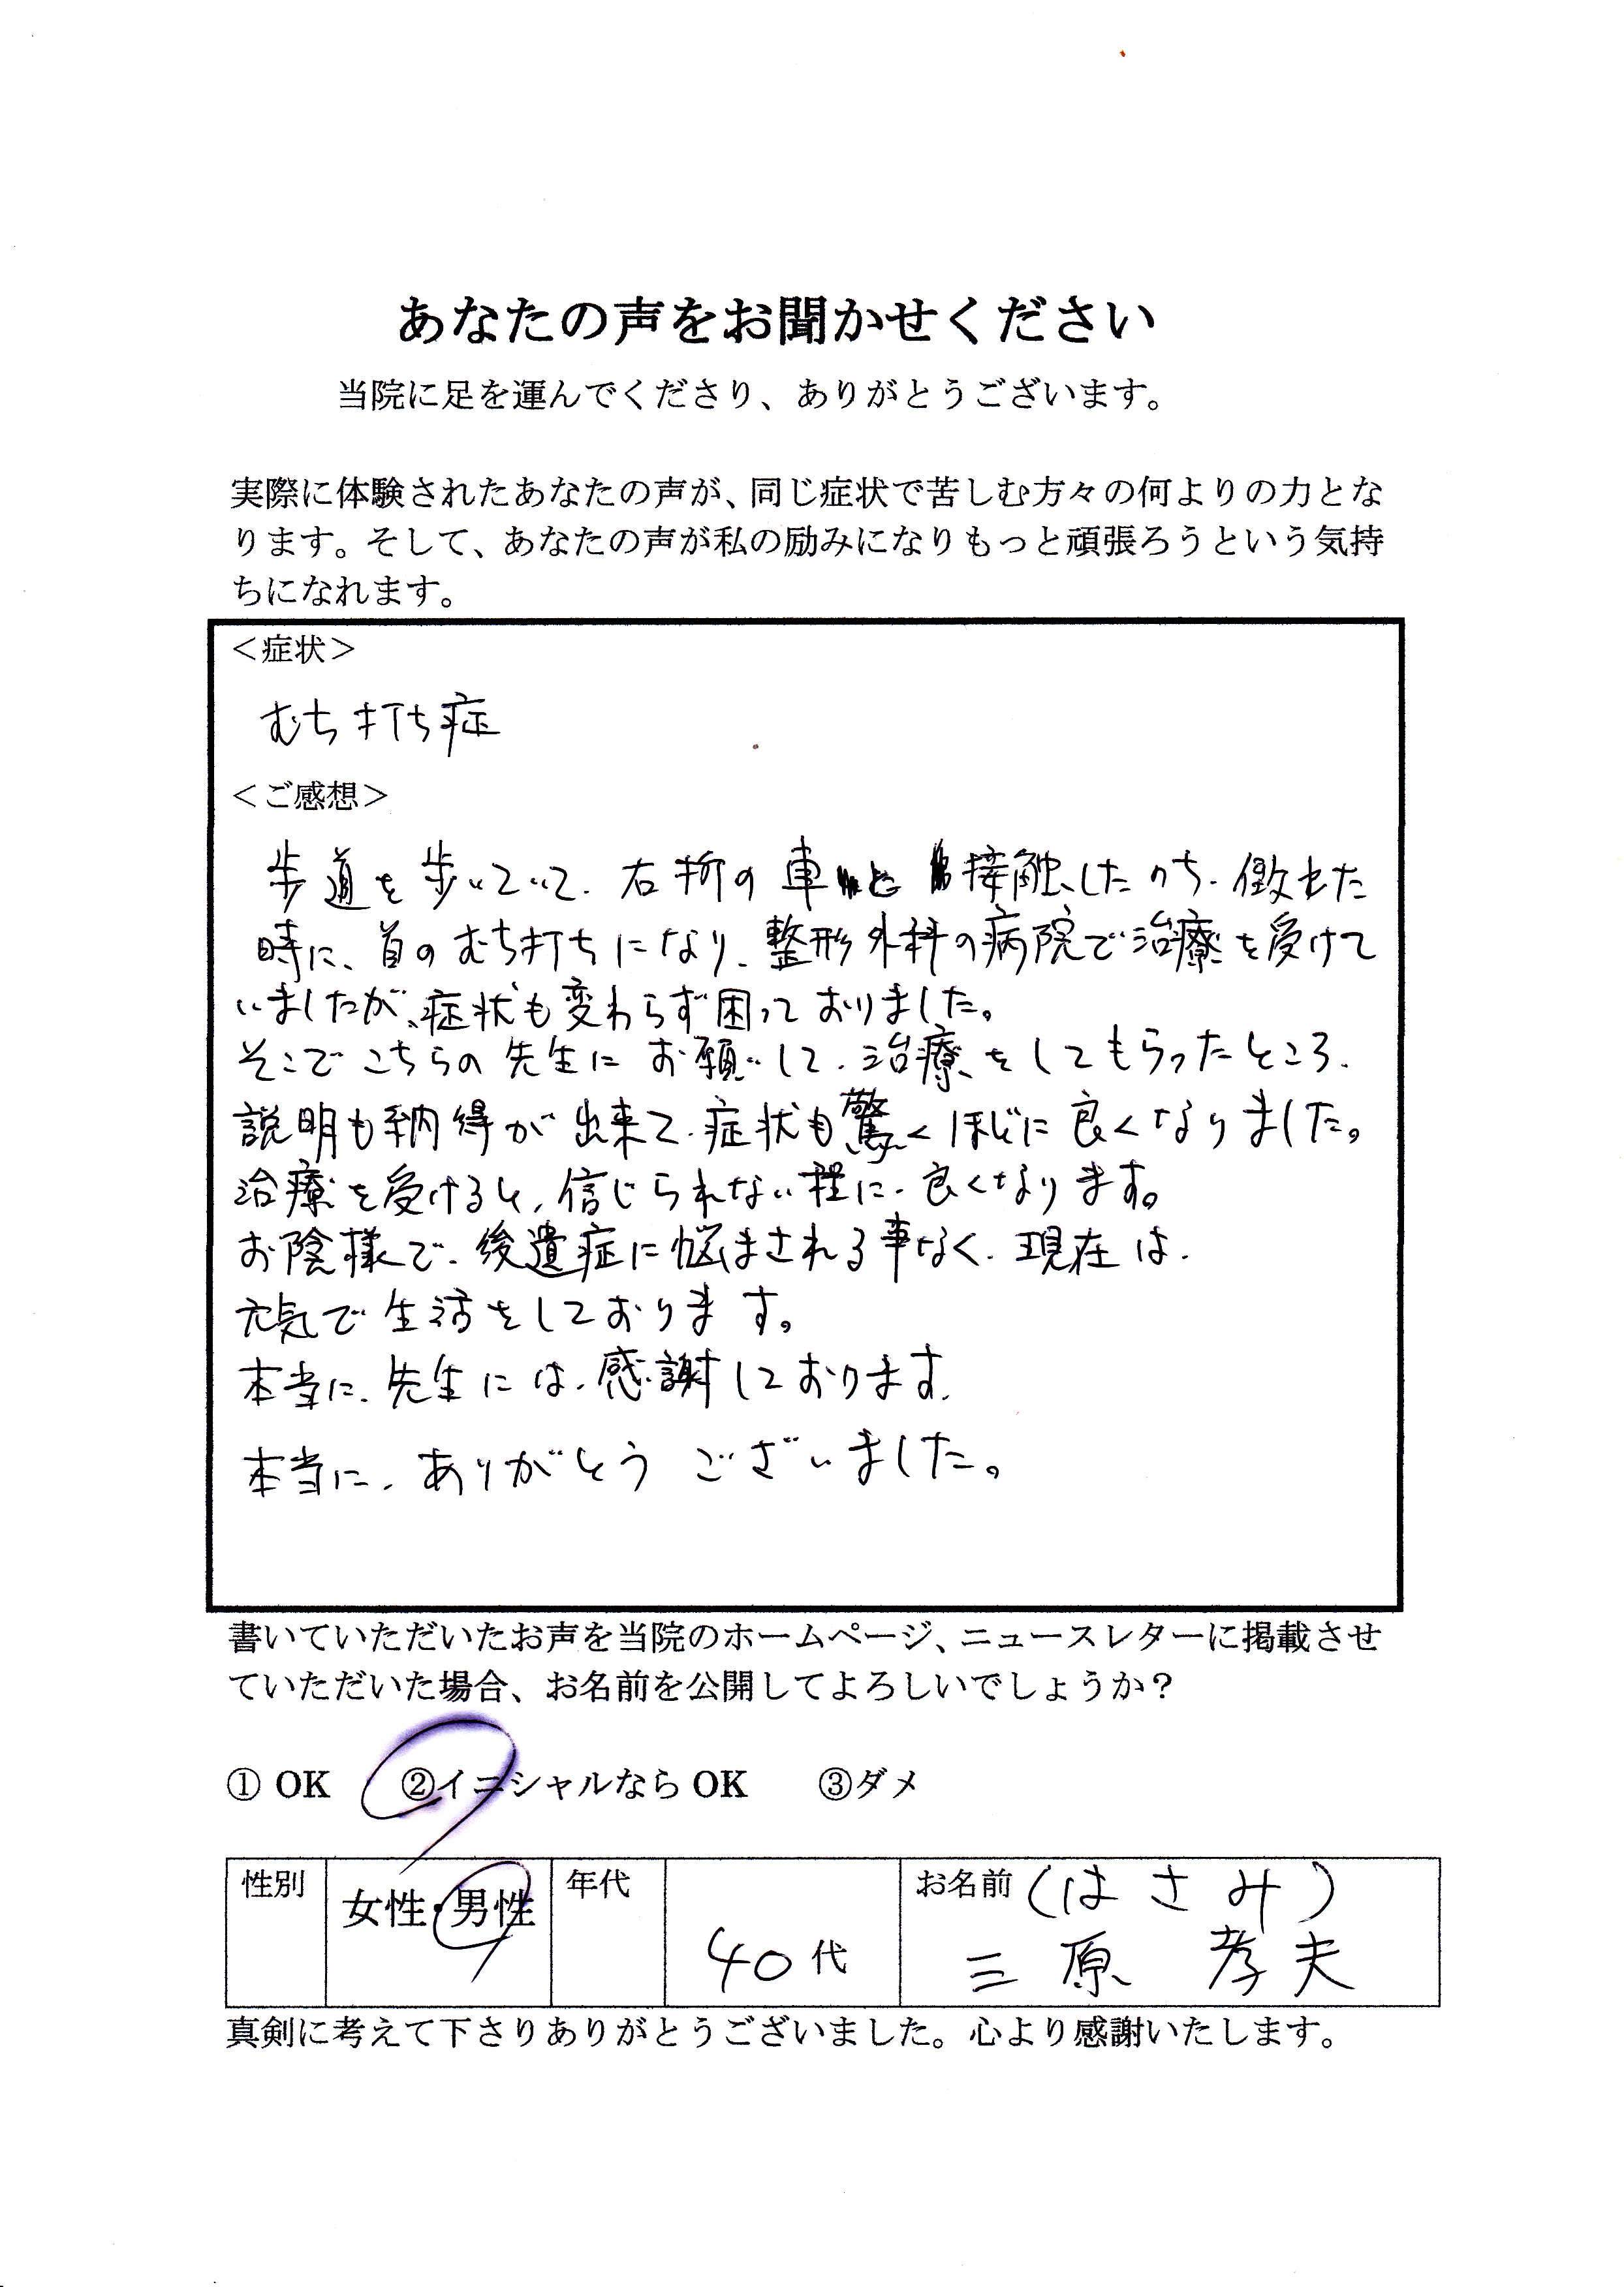 あなたの声をお聞かせください
当院に足を運んでくださり、ありがとうございます。
実際に体験されたあなたの声が、同じ症状で苦しむ方々の何よりの力とな
ります。そして、あなたの声が私の励みになりもっと頑張ろうという気持
ちになれます。
＜症状＞
むち打ち症
＜ご感想＞
歩道を歩いていて、右折の車と接触したのち、倒れた
時に、首のむち打ちになり、整形外科の病院で治療を受けて
いましたが、症状も変わらず困っておりました。
そこでこちらの先生にお願いして、治療をしてもらったところ、
説明も納得が出来て、症状も驚くほどに良くなりました。
治療を受けると、信じられない程に、良くなります。
お陰様で、後遺症に悩まされる事なく、現在は、
元気で生活をしております。
本当に、先生には、感謝しております。
本当に、ありがとうございました。
書いていただいたお声を当院のホームページ、ニュースレターに掲載させ
ていただいた場合、お名前を公開してよろしいでしょうか？
① OK ②イニシャルなら OK ③ダメ
性別 女性・男性 年代 40代 お名前 (はさみ)
三原 孝夫
真剣に考えて下さりありがとうございました。心より感謝いたします。